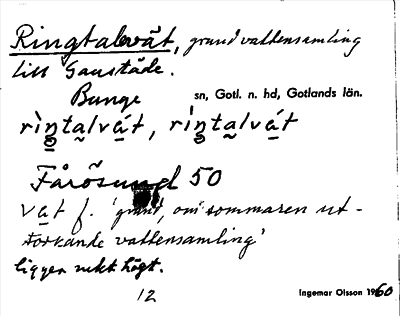 Ringtalavät, grund vattensamling
till Gaustäde.
Bunge sn, Gotl. n. hd, Gotlands län.
rìŋtalvát, rìŋtalvát
Fårösund 50
vat f. 'grund, om sommaren ut-
torkande vattensamling'
ligger rukt högt.
12
Ingemar Olsson 1960